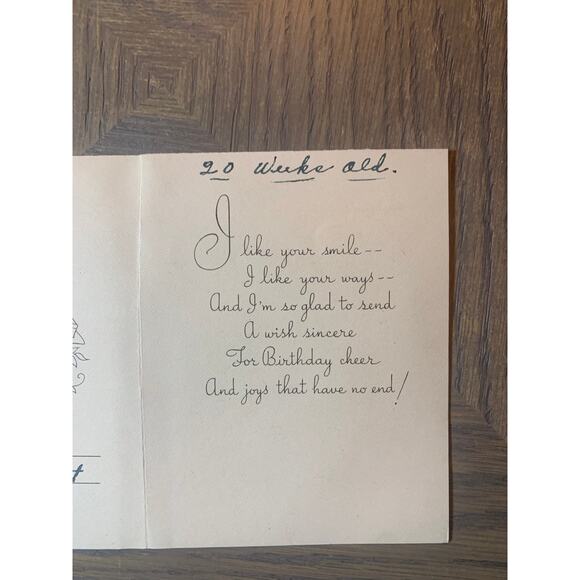 20 Weeks Old.
I like your smile--
I like your ways--
And I'm so glad to send
A wish sincere
For Birthday cheer
And joys that have no end!